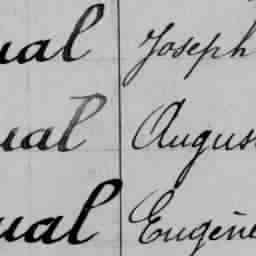 ual Joseph
ual Augus
ual Eugène